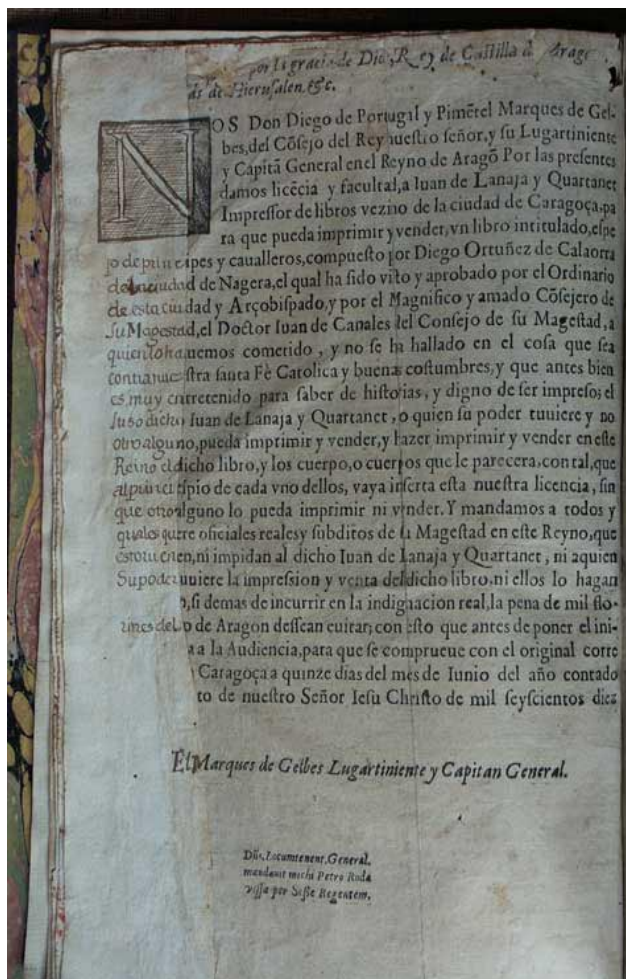 por la gracia de Dios, Rey de Castilla d Arago
ds de Hierusalen &c.
NOS Don Diego de Portugal y Pimẽtel Marques de Gel-
bes, del Cõsejo del Rey nuestro señor, y su Lugartiniente
y Capitã General en el Reyno de Aragõ Por las presentes
damos licẽcia y facultad, a Iuan de Lanaja y Quartanet
Impressor de libros vezino de la ciudad de Caragoça, pa
ra que pueda imprimir y vender, vn libro intitulado, espe
jo de principes y caualleros, compuesto por Diego Ortuñez de Calaorra
de la ciudad de Nagera, el qual ha sido visto y aprobado por el Ordinario
de esta ciudad y Arçobispado, y por el Magnifico y amado Cõsejero de
su Magestad, el Doctor Iuan de Canales del Consejo de su Magestad, a
quien lo hauemos cometido, y no se ha hallado en el cosa que sea
contra nuestra santa Fè Catolica y buenas costumbres, y que antes bien
es muy entretenido para saber de historias, y digno de ser impreso; el
susodicho Iuan de Lanaja y Quartanet, o quien su poder tuuiere y no
otro alguno, pueda imprimir y vender, y hazer imprimir y vender en este
Reino el dicho libro, y los cuerpo, o cuerpos que le parecera, con tal, que
al principio de cada vno dellos, vaya inserta esta nuestra licencia, sin
que otro alguno lo pueda imprimir ni vender. Y mandamos a todos y
qualesquere oficiales reales y subditos de su Magestad en este Reyno, que
estoruen, ni impidan al dicho Iuan de Lanaja y Quartanet, ni aquien
Su poder uuiere la impression y venta del dicho libro, ni ellos lo hagan
, si demas de incurrir en la indignacion real, la pena de mil flo-
rines del o de Aragon dessean euitar; con esto que antes de poner el ini-
a a la Audiencia, para que se comprueue con el original corre
Caragoça a quinze dias del mes de Iunio del año contado
to de nuestro Señor Iesu Christo de mil seyscientos diez
El Marques de Gelbes Lugartiniente y Capitan General.
Dñs. Locumtenent. General.
mandauit michi Petro Roda
vissa por Sesse Regentem.